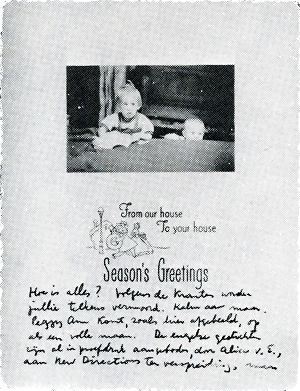 From our house
To your house
Season's Greetings
Hoe is alles? Volgens de kranten worden
jullie telkens vermoord. Kalm aan maar.
Peggy Ann komt, zoals hier afgebeeld, op
als een volle maan. De engelse gedichten
zijn al in proefdruk aangeboden, door Alice v. E.,
aan New Directions ter verspreiding, maar